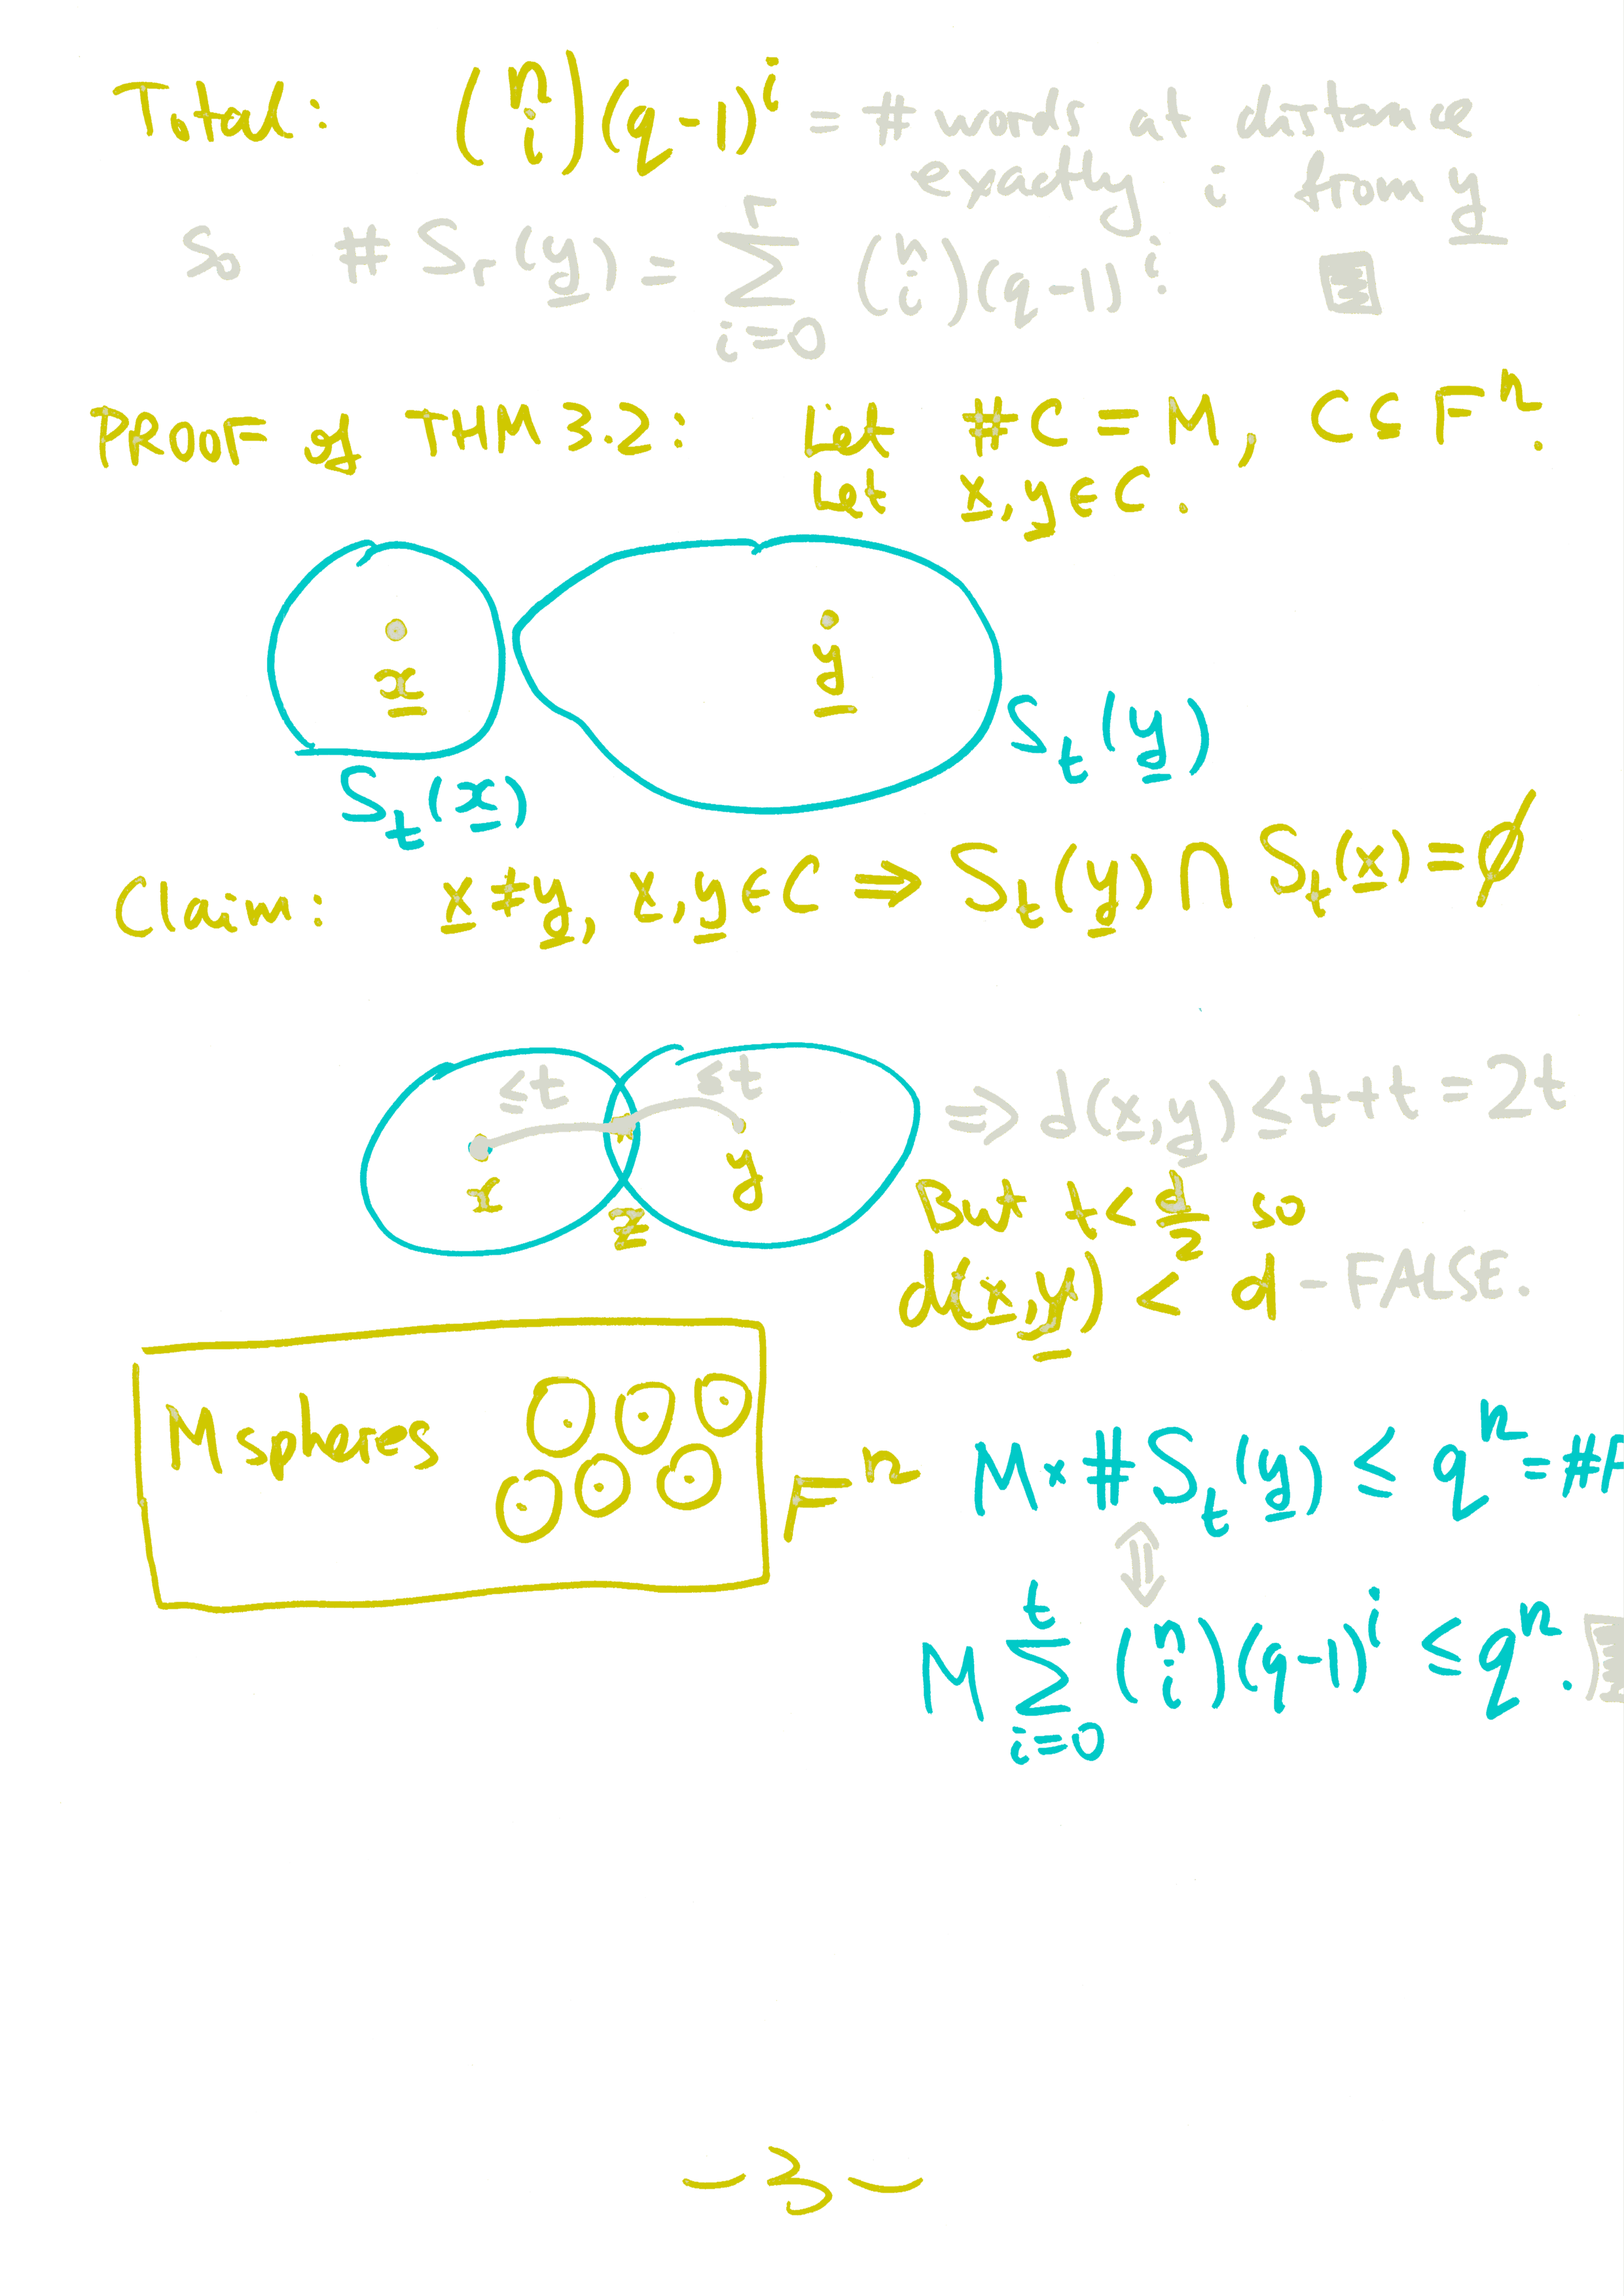 Total: (n i)(q-1)^i = # words at distance
exactly i from y
So # S_r(y) = Σ_{i=0}^{r} (n i)(q-1)^i.
PROOF of THM 3.2: Let #C = M, C ⊆ F^n.
Let x, y ∈ C.
x
y
S_t(y)
S_t(x)
Claim: x ≠ y, x, y ∈ C ⟹ S_t(y) ∩ S_t(x) = ∅
≤t ≤t ⟹ d(x,y) ≤ t+t = 2t
x y
z
But t < d/2 so
d(x,y) < d - FALSE.
M spheres
F^n
M × # S_t(y) ≤ q^n = #F
⇕
M Σ_{i=0}^{t} (n i)(q-1)^i ≤ q^n.
- 3 -